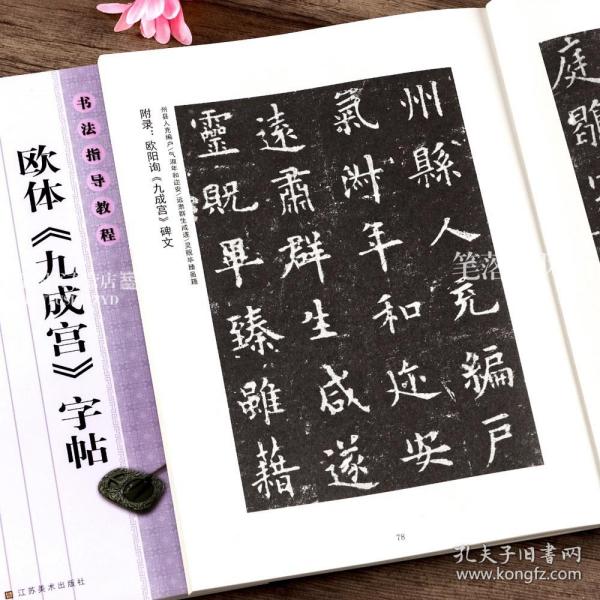 书法指导教程
欧体《九成宫》字帖
江苏美术出版社
州縣人充編戶
氣淑年和迩安
遠肅群生咸遂
靈貺畢臻雖藉
州县人充编户/气淑年和迩安/远肃群生咸遂/灵贶毕臻虽藉
附录：欧阳询《九成宫》碑文
78
庭
笔落
营店
ZYD
孔夫子旧书网
www.kongfz.com